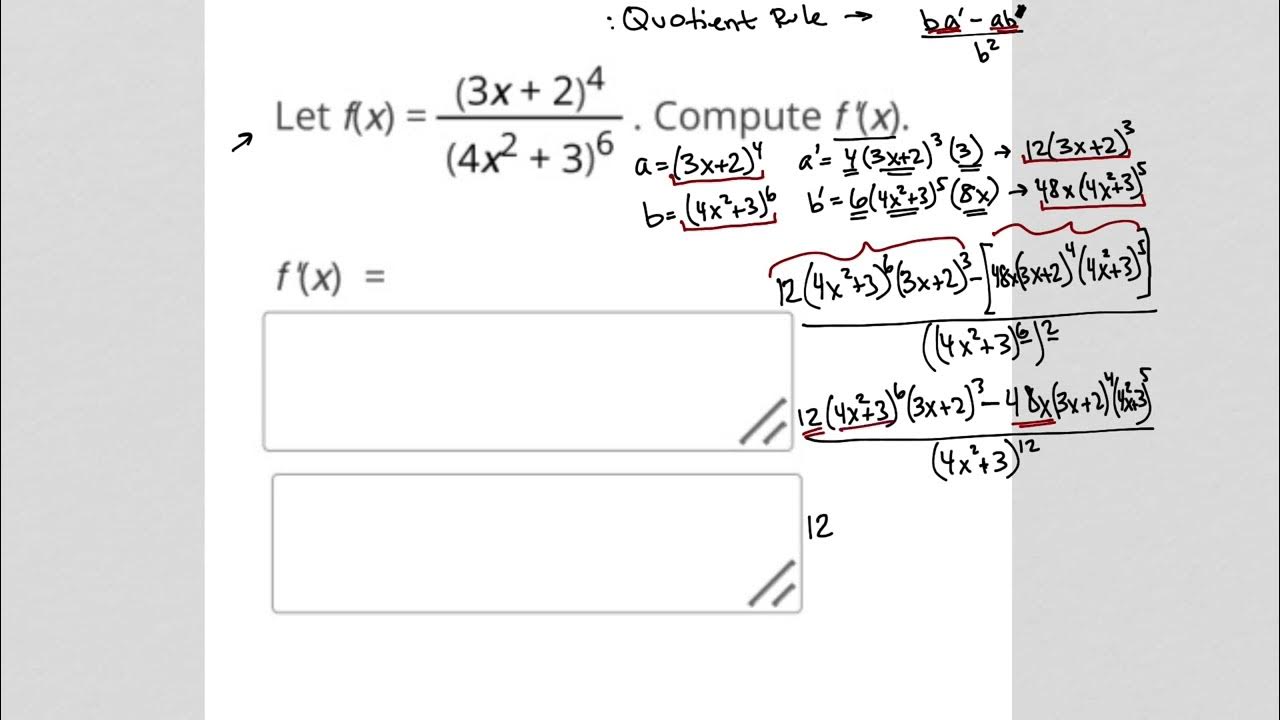 : Quotient Rule → (ba' - ab')/b²
Let f(x) = (3x + 2)⁴/(4x² + 3)⁶ . Compute f'(x).
a = (3x+2)⁴ a' = 4(3x+2)³(3) → 12(3x+2)³
b = (4x²+3)⁶ b' = 6(4x²+3)⁵(8x) → 48x(4x²+3)⁵
f'(x) =
12(4x²+3)⁶(3x+2)³ - [48x(3x+2)⁴(4x²+3)⁵]
((4x²+3)⁶)²
12(4x²+3)⁶(3x+2)³ - 48x(3x+2)⁴(4x²+3)⁵
(4x²+3)¹²
12